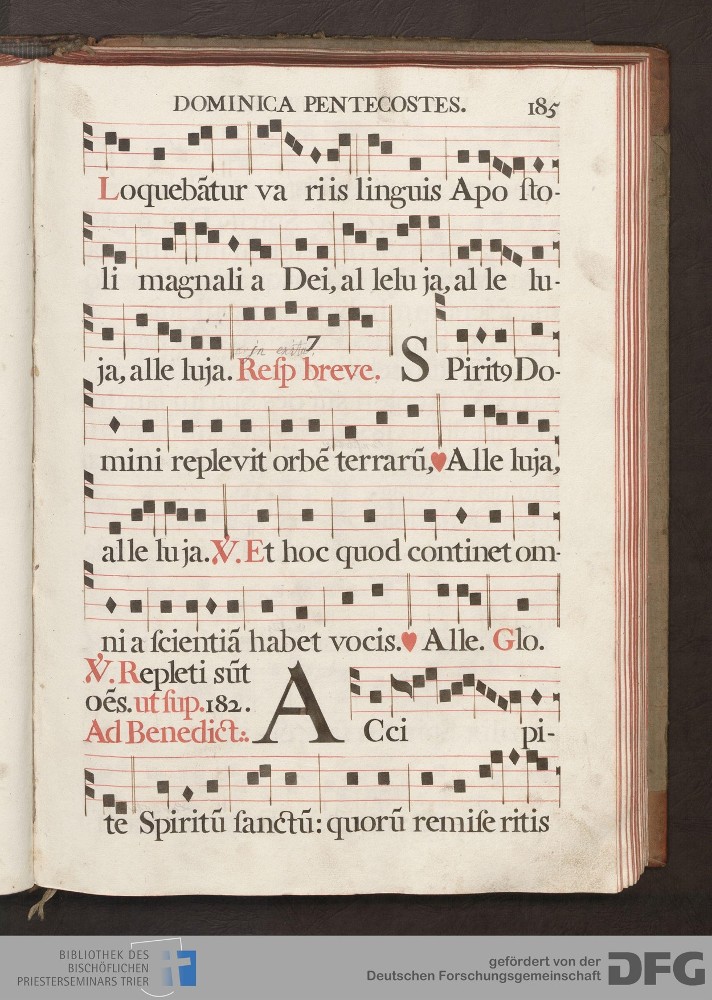 DOMINICA PENTECOSTES. 185
Loquebãtur va riis linguis Apo ſto-
li magnali a Dei, al lelu ja, al le lu-
ja, alle luja. Reſp breve. S Pirit9 Do-
mini replevit orbẽ terrarũ,♥Alle luja,
alle lu ja. ℣. Et hoc quod continet om-
ni a ſcientiã habet vocis.♥ Alle. Glo.
℣. Repleti sũt
oẽs. ut ſup. 182.
Ad Benedict:. A Cci pi-
te Spiritũ ſanctũ: quorũ remiſe ritis
BIBLIOTHEK DES
BISCHÖFLICHEN
PRIESTERSEMINARS TRIER
gefördert von der
Deutschen Forschungsgemeinschaft DFG